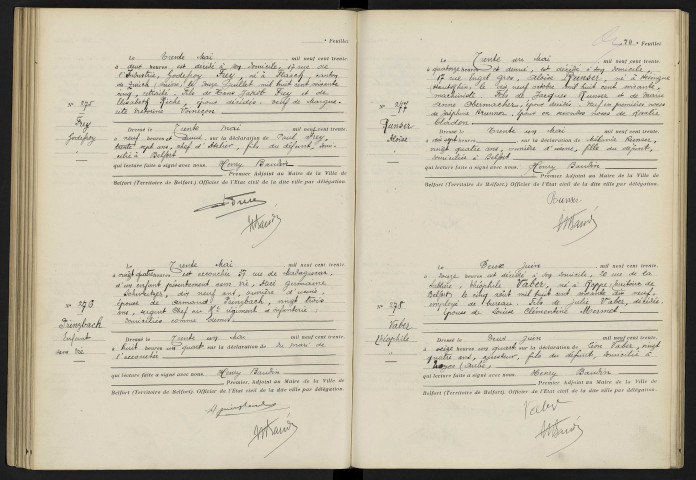 Feuillet
Le Trente Mai mil neuf cent trente
à deux heures est décédé à son domicile, 17 rue de
l'Industrie, Godefroy Frey, né à Flaach, canton
de Zurich, Suisse, le onze Juillet mil huit cent soixante
cinq, retraité, fils de Frey et de
Elisabeth, époux décédés. veuf de Marguerite
N° 275
Frey
Godefroy
Dressé le Trente Mai mil neuf cent trente
à neuf heures sur la déclaration de Paul Frey,
trente sept ans, chef d'atelier, fils du défunt, domicilié
à Belfort
qui lecture faite a signé avec nous, Henry Baudin
Premier Adjoint au Maire de la Ville de
Belfort (Territoire de Belfort,) Officier de l'Etat civil de la dite ville par délégation.
Le Trente Mai mil neuf cent trente
à vingt quatre heures est accouchée 57 rue de Madagascar,
d'un enfant présentement sans vie, Germaine
dix neuf ans, ouvrière d'usine,
épouse de Armand Prinzbach, vingt trois
ans, sergent chef au régiment d'infanterie,
domiciliés comme dessus
N° 276
Prinzbach
Enfant
sans vie
Dressé le Trente un Mai mil neuf cent trente
à huit heures un quart sur la déclaration de du mari de
l'accouchée
qui lecture faite a signé avec nous, Henry Baudin
Premier Adjoint au Maire de la Ville de
Belfort (Territoire de Belfort.) Officier de l'Etat civil de la dite ville par délégation.
70 e Feuillet
Le Trente un Mai mil neuf cent trente
à quatorze heures et demie, est décédé à son domicile,
17 rue Engel Gros, Aloïse Runser, né à
Haut-Rhin, le dix neuf octobre mil huit cent soixante,
fils de Jacques Runser et de Marie
Anne Obermacher, époux décédés. veuf en premières noces
de Delphine Brunner, époux en secondes noces de Rosalie
N° 277
Runser
Aloïse
Dressé le Trente un Mai mil neuf cent trente
à dix sept heures sur la déclaration de Mélanie Runser,
vingt quatre ans, ouvrière d'usine, fille du défunt,
domiciliée à Belfort
qui lecture faite a signé avec nous, Henry Baudin
Premier Adjoint au Maire de la Ville de
Belfort (Territoire de Belfort.) Officier de l'Etat civil de la dite ville par délégation.
Runser
Le Deux Juin mil neuf cent trente
à onze heures est décédé à son domicile, 20 rue de la
Théophile Vaber, né à Roppe, Territoire de
Belfort, le cinq août mil huit cent soixante dix neuf,
employé de bureau. Fils de Julie Vaber, décédée.
Epoux de Louise Clémentine Marmet
N° 278
Vaber
Théophile
Dressé le Deux Juin mil neuf cent trente
à seize heures un quart sur la déclaration de Léon Vaber, vingt
quatre ans, ajusteur, fils du défunt, domicilié à
(Aube)
qui lecture faite a signé avec nous, Henry Baudin
Premier Adjoint au Maire de la Ville de
Belfort (Territoire de Belfort.) Officier de l'Etat civil de la dite ville par délégation.
Vaber